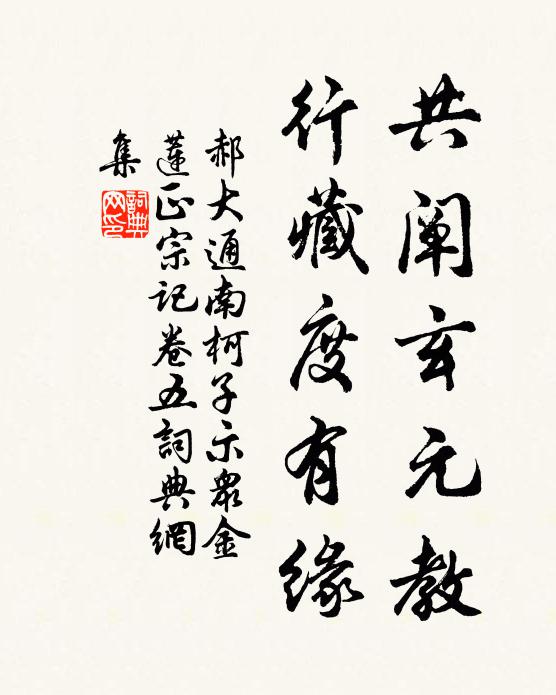 共阐玄元教
行藏度有缘
郝大通南柯子示衆金
莲正宗记卷五詞典網
集
詞典网印